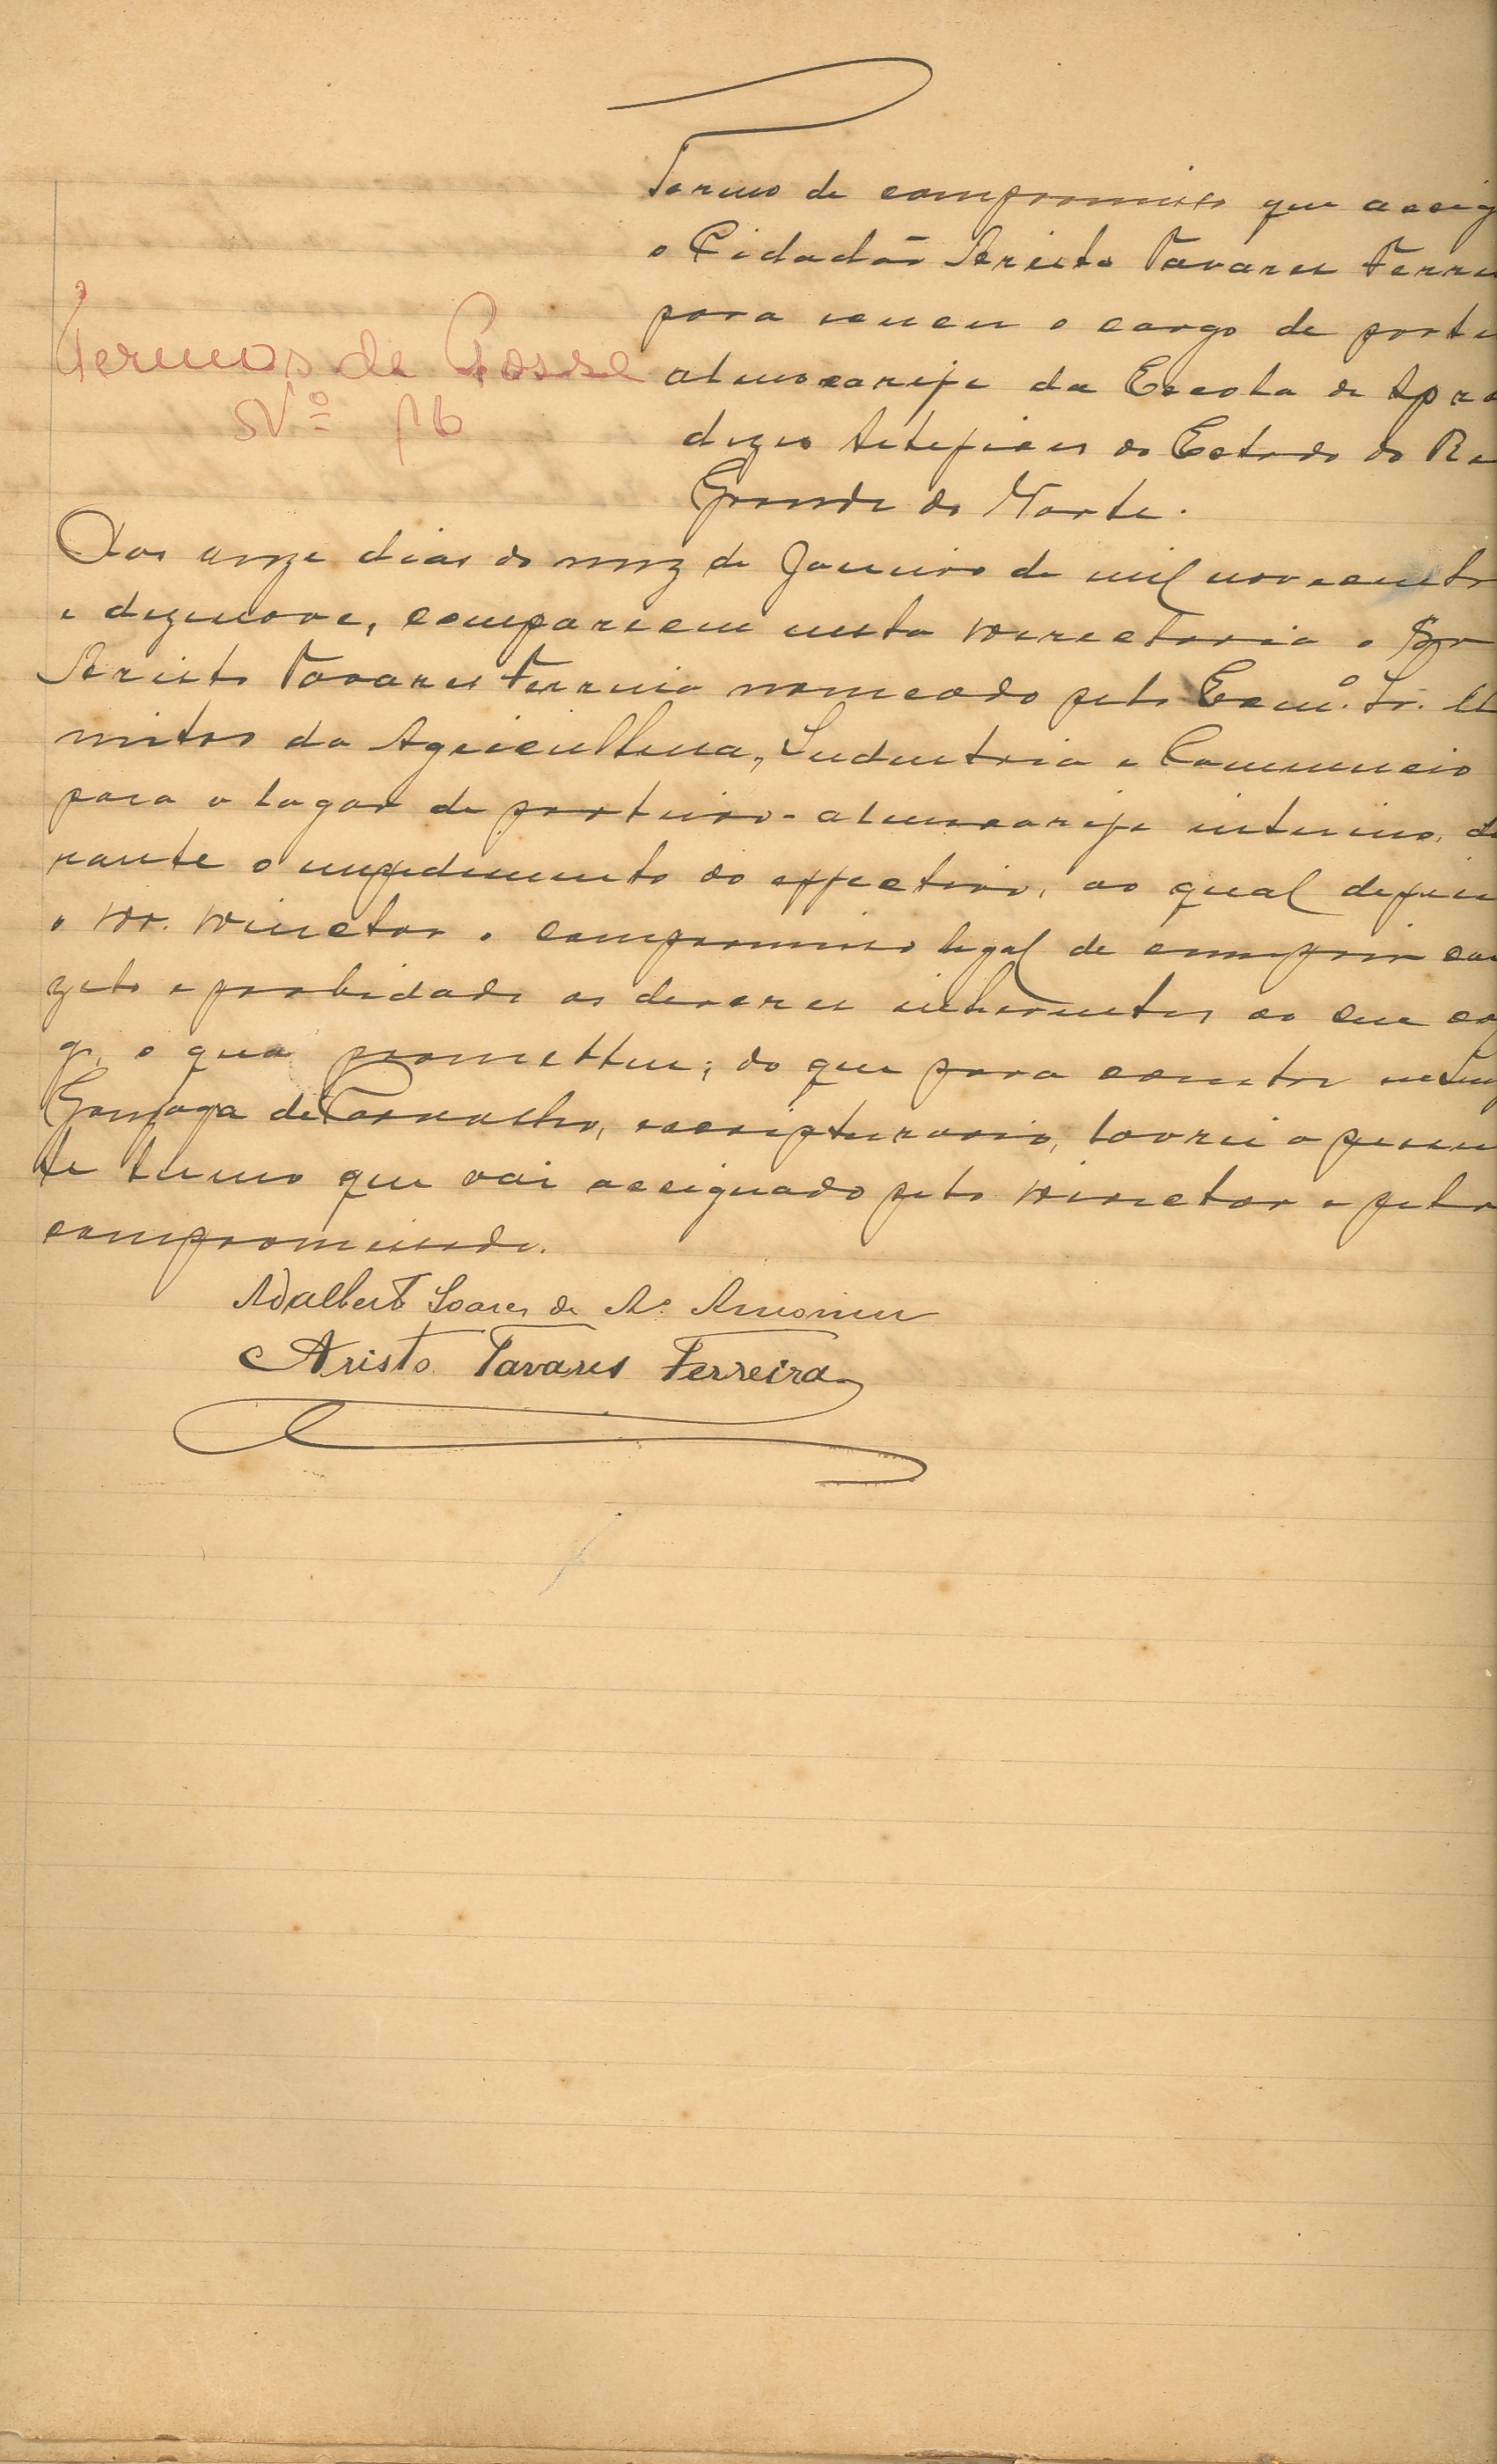 Termo de compromisso que assig
o Cidadão Aristo Tavares Ferre
para exercer o cargo de porte
Termos de Posse
Nº 16
almoxarife da Escola de Apre
dizes Artifices do Estado do Ri
Grande do Norte.
Aos onze dias do mez de Janeiro de mil novecento
e dezenove, compareceu nesta Directoria o Sr
Aristo Tavares Ferreira nomeado pelo Exmº. Sr. Mi
nistro da Agricultura, Industria e Commercio
para o logar de porteiro-almoxarife interino, du
rante o impedimento do effectivo, ao qual deferiu
o Dr. Director o compromisso legal de cumprir com
zelo e probidade os deveres inherentes ao seu car
go, o que prometteu; do que para constar eu Luiz
Gonzaga de Carvalho, escripturario, lavrei o presen
te termo que vai assignado pelo Director e pelo
compromissado.
Adalberto Soares de A. Amorim
Aristo Tavares Ferreira